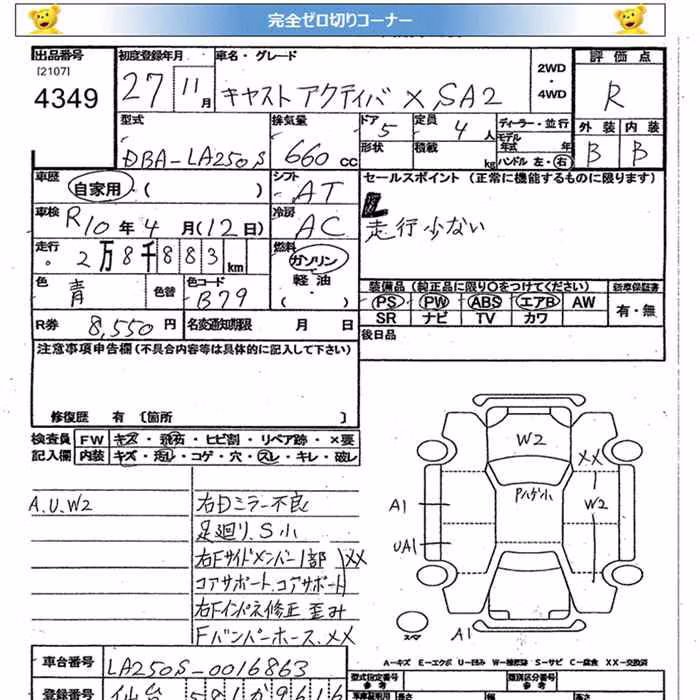 完全ゼロ切りコーナー
出品番号
[2107]
4349
初度登録年月
27 11月
車名・グレード
キャスト アクティバ X SA2
2WD
・
4WD
評価点
R
型式
DBA-LA250S
排気量
660 cc
ドア 5
定員 4 人
形状
積載 kg
ディーラー・並行
モデル年式 年
ハンドル 左・右
外装 内装
B B
車歴
自家用・( )
シフト
AT
車検 R10年4月(12日)
冷房
AC
走行
2万8千883km
燃料
ガソリン
軽油
・( )
色
青
色替
色コード
B79
R券 8,550円
名変通知期限 月 日
セールスポイント (正常に機能するものに限ります)
走行少ない
装備品 (純正品に限り○をつけてください)
新車保証書
PS PW ABS エアB AW
有・無
SR ナビ TV カワ
後日品
注意事項申告欄(不具合内容等は具体的に記入して下さい)
修復歴 有 〔箇所 〕
検査員 FW キズ・飛石・ヒビ割・リペア跡・×要
記入欄 内装 キズ・汚レ・コゲ・穴・スレ・キレ・破レ
A.U.W2
右Dミラー不良
足廻り.S小
右Fサイドメンバー1部 XX
コアサポート.コアサポート
右Fインパネ修正 歪み
Fバンパーホース.XX
W2
XX
Pハゲ小
A1
W2
UA1
A1
スペア
A-キズ E-エクボ U-凹み W-補修跡 S-サビ C-腐食 XX-交換済
車台番号 LA250S-0016863
型式指定番号
参考
類別区分番号
参考
登録番号 仙台 581 か 9616
車輌証明用
参考
長さ